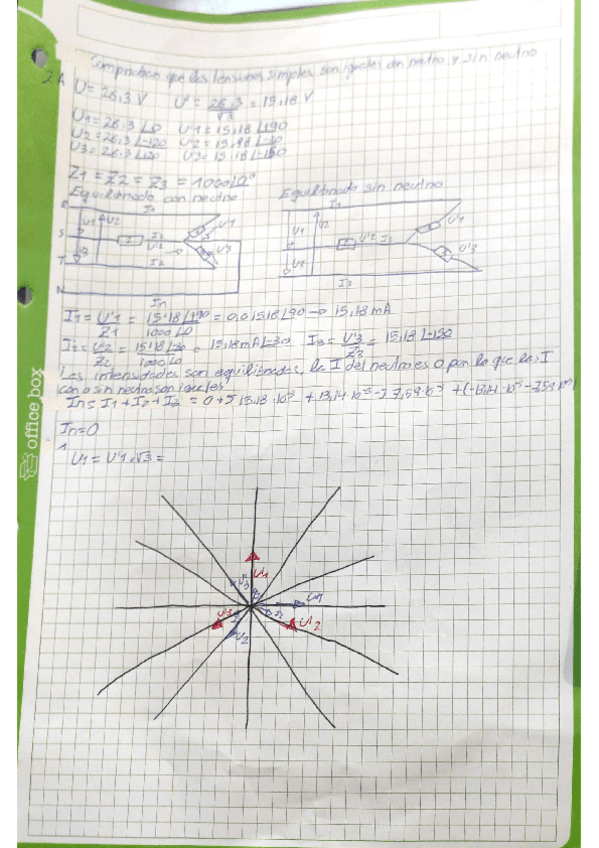 Comprobar que las tensiones simples son iguales con neutro y sin neutro
2A
U = 26,3 V U' = 26,3/√3 = 15,18 V
U1 = 26,3 ∠0 U'1 = 15,18 ∠90
U2 = 26,3 ∠-120 U'2 = 15,18 ∠-30
U3 = 26,3 ∠120 U'3 = 15,18 ∠-150
Z1 = Z2 = Z3 = 1000∠0°
Equilibrado con neutro Equilibrado sin neutro
R I1 I1
U1 U2 U'1 U1 U'1
S I2 U'2 U'2 I2
U'3 U'3
T I3
N In
I1 = U'1/Z1 = 15'18∠90/1000∠0 = 0,01518∠90 → 15,18 mA
I2 = U'2/Z2 = 15'18∠-30/1000∠0 = 15,18mA∠-30 I3 = U'3/Z3 = 15,18∠-150
Las intensidades son equilibradas, la I del neutro es 0 por lo que las I
con o sin neutro son iguales.
In = I1 + I2 + I3 = 0 + J 15,18·10³ + 13,14·10³ - J 7,59·10³ + (-13,14·10³ - 7,59·10³)
In=0
U1 = U'1·√3 =
U'1
U1
U'3
U'2
U2
office box